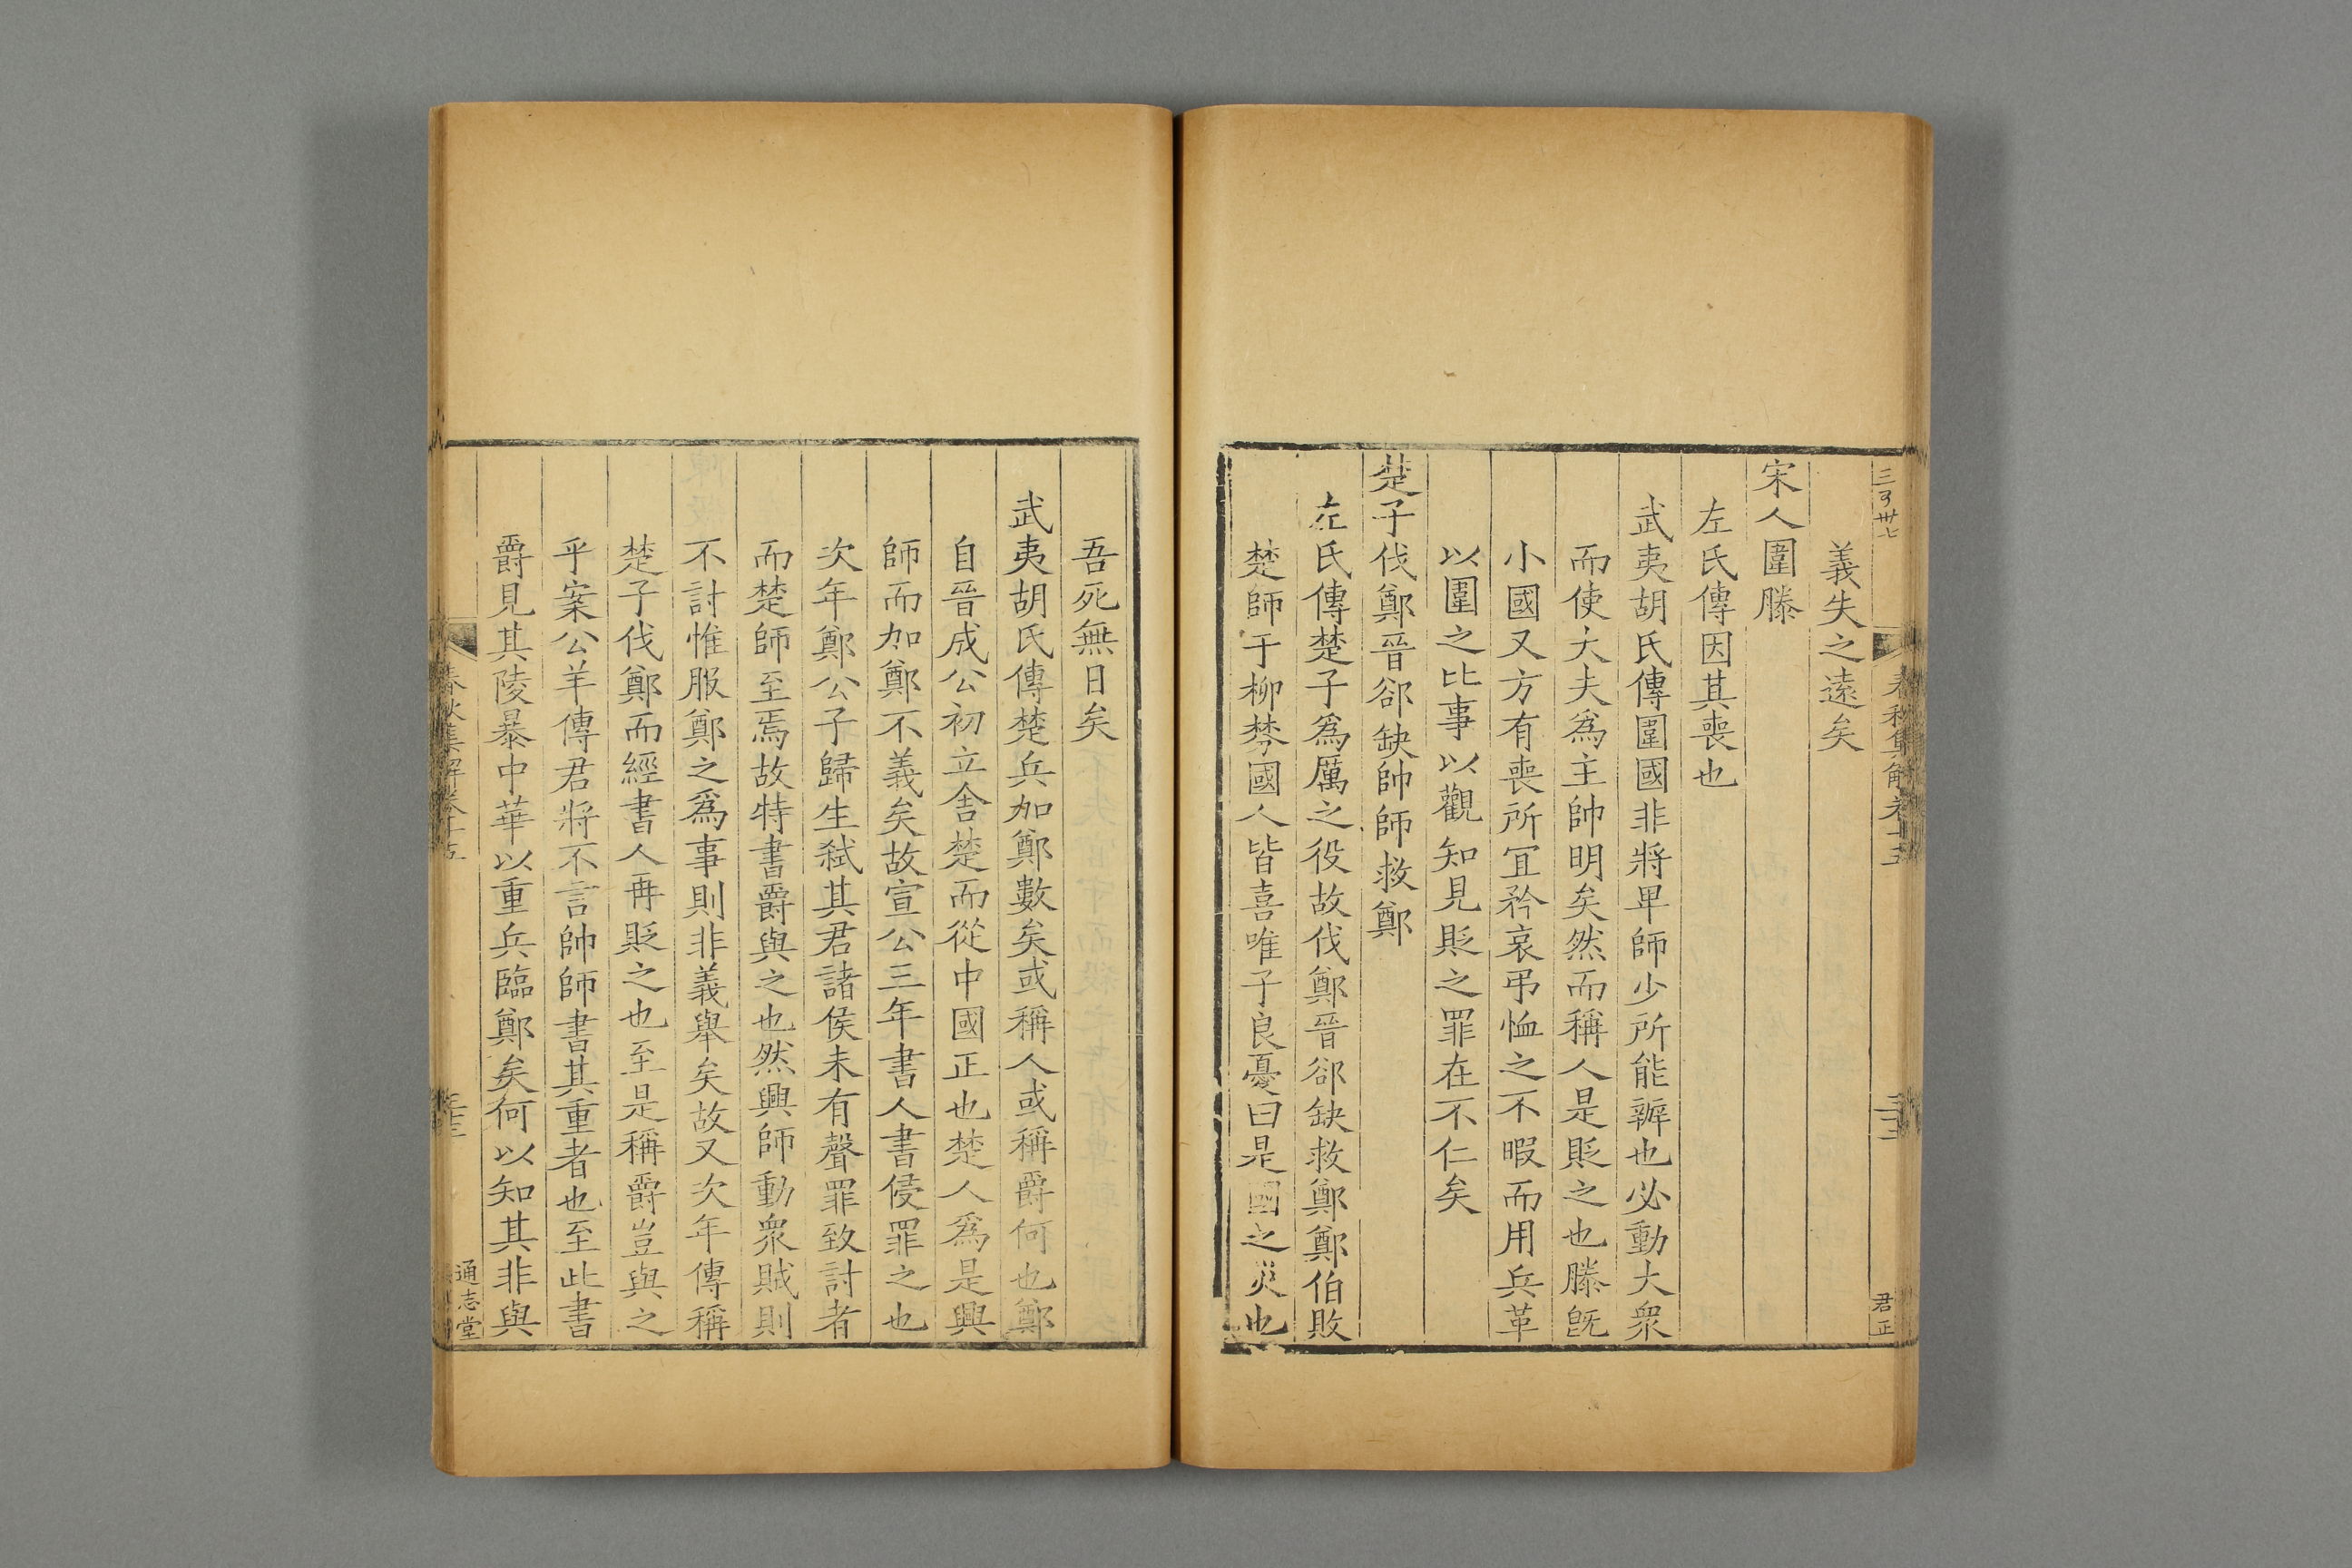 三百卅七
春秋集解卷十五
君正
義失之遠矣
宋人圍滕
左氏傳因其喪也
武夷胡氏傳圍國非將卑師少所能辦也必動大衆
而使大夫為主帥明矣然而稱人是貶之也滕旣
小國又方有喪所宜矜哀弔恤之不暇而用兵革
以圍之比事以觀知見貶之罪在不仁矣
楚子伐鄭晉郤缺帥師救鄭
左氏傳楚子為厲之役故伐鄭晉郤缺救鄭鄭伯敗
楚師于柳棼國人皆喜唯子良憂曰是國之災也
吾死無日矣
武夷胡氏傳楚兵加鄭數矣或稱人或稱爵何也鄭
自晉成公初立舍楚而從中國正也楚人為是興
師而加鄭不義矣故宣公三年書人書侵罪之也
次年鄭公子歸生弑其君諸侯未有聲罪致討者
而楚師至焉故特書爵與之也然興師動衆賊則
不討惟服鄭之為事則非義舉矣故又次年傳稱
楚子伐鄭而經書人再貶之也至是稱爵豈與之
乎案公羊傳君將不言帥師書其重者也至此書
爵見其陵暴中華以重兵臨鄭矣何以知其非與
春秋集解卷十五
通志堂